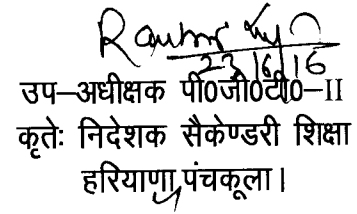 23/6/16
उप–अधीक्षक पी0जी0टी0–II
कृतेः निदेशक सैकेण्डरी शिक्षा
हरियाणा पंचकूला।